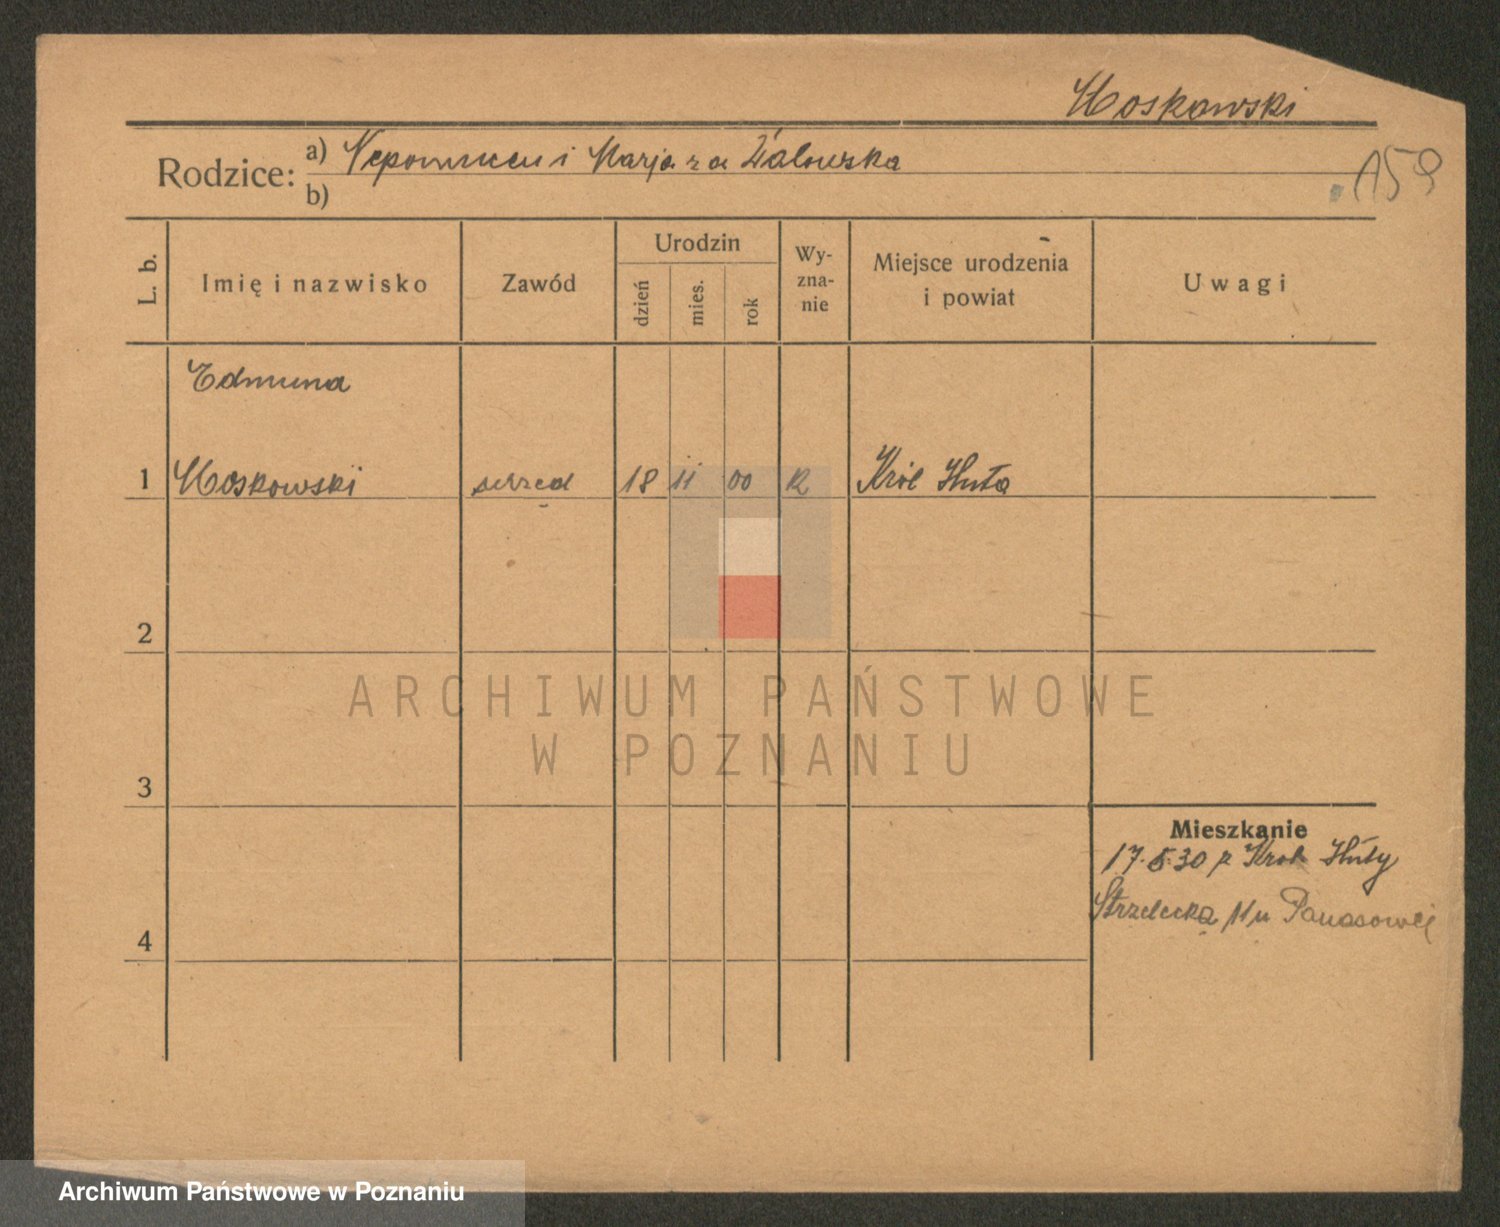 Moskowski
Rodzice: a) Nepomucen i Marja z d Żalouska
b)
159
L. b.
Imię i nazwisko
Zawód
Urodzin
dzień
mies.
rok
Wy-
zna-
nie
Miejsce urodzenia
i powiat
Uwagi
Edmund
1 Moskowski urzęd 18 11 00 k Król Huta
2
3
4
Mieszkanie
17.5 30 z Krol Huty
Strzelecka 11 u
ARCHIWUM PAŃSTWOWE
W POZNANIU
Archiwum Państwowe w Poznaniu